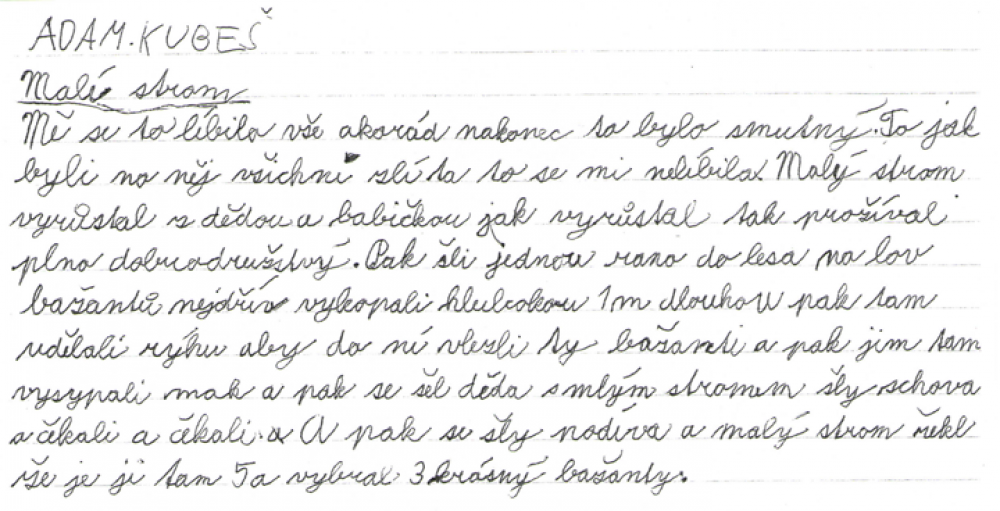 ADAM.KUBEŠ
Malí strom
Mě se to líbilo vše akorád nakonec to bylo smutný. To jak
byli na něj všichni zlí ta to se mi nelíbila. Malý strom
vyrůstal z dědou a babičkou jak vyrůstal tak prožíval
plno dobrodružstvý. Pak šli jednou rano do lesa na lov
bažantů nejdřív vykopali hlubokou 1m dlouhou pak tam
udělali rýhu aby do ní vlezli ty bažanti a pak jim tam
vysypali mak a pak se šel děda smlým stromem šly schova
a čekali a čekali. a A pak se šly podíva a malý strom řekl
že je ji tam 5 a vybral 3 krásný bažanty.